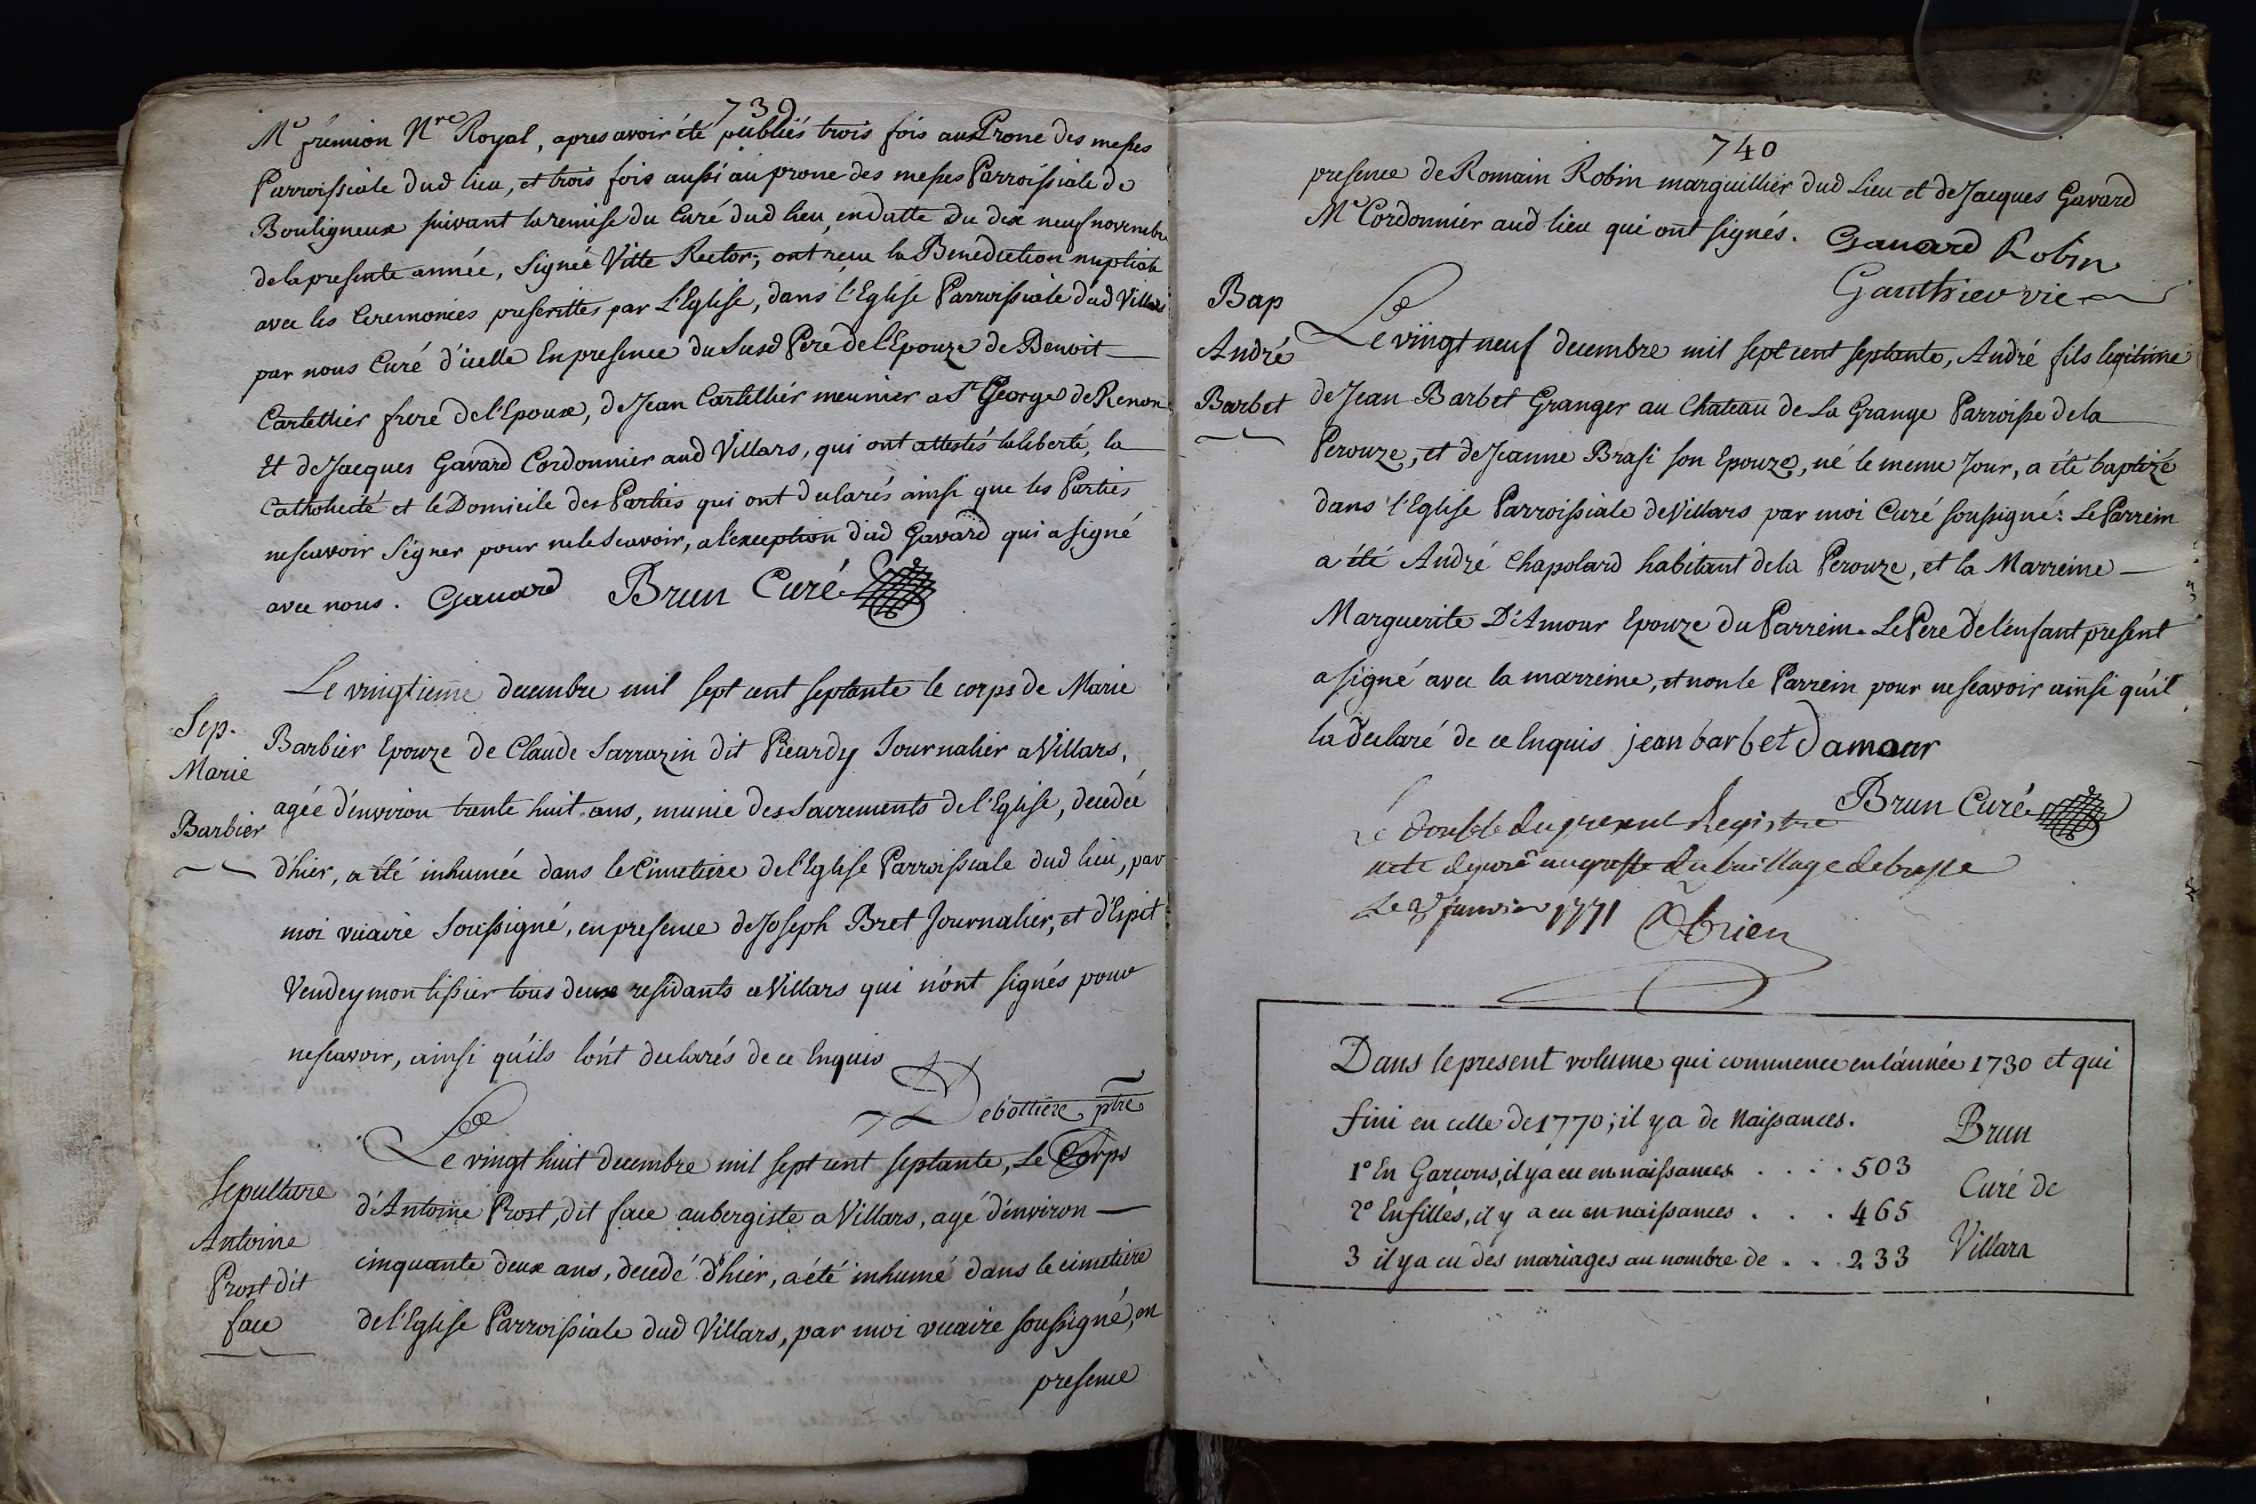 739
Me fremion Nre Royal, apres avoir été publiés trois fois au Prone des messes
Parroissiale dud lieu, et trois fois aussi au prone des messes Parroissiale de
Bouligneux suivant la remise du Curé dud lieu, en datte du dix neuf novembre
de la presente année, Signée Vitte Rector; ont reçu la Benediction nuptiale
avec les Ceremonies prescrittes par L'Eglise, dans l'Eglise Parroissiale dud Villars
par nous Curé d'icelle En presence du Susd Pere de l'Epouze de Benoit
Cartellier frere de l'Epoux, de Jean Cartellier meunier a St George de Renon
Et de Jacques Gavard Cordonnier aud Villars, qui ont attestés la liberté, la
Catholicité et le Domicile des Parties qui ont declarés ainsi que les Parties
ne scavoir Signer pour ne le Scavoir, a l'exception dud Gavard qui a signé
avec nous. Gavard Brun Curé
Sep.
Marie
Barbier
Le vingtieme decembre mil sept cent septante le corps de Marie
Barbier Epouze de Claude Sarrazin dit Picardy Journalier a Villars,
agée d'environ trente huit ans, munie des Sacrements de l'Eglise, decedée
d'hier, a été inhumée dans le Cimetiere de l'Eglise Parroissiale dud lieu, par
moi vicaire Soussigné, en presence de Joseph Bret Journalier, et d'Espit
Vendeymon tissier tous deux residants a Villars qui n'ont signés pour
ne scavoir, ainsi qu'ils l'ont declarés de ce Enquis
Debottiere ptre
Sepulture
Antoine
Prost dit
face
Le vingt huit decembre mil sept cent septante, Le Corps
d'Antoine Prost, dit face aubergiste a Villars, agé d'environ
cinquante deux ans, decedé d'hier, a été inhumé dans le cimetiere
de l'Eglise Parroissiale dud Villars, par moi vicaire soussigné, en
presence
740
presence de Romain Robin marguillier dud Lieu et de Jacques Gavard
Me Cordonnier aud lieu qui ont signés. Gavard Robin
Gauthier vic
Bap
André
Barbet
Le vingt neuf decembre mil sept cent septante, André fils legitime
de Jean Barbet Granger au Chateau de La Grange Parroisse de la
Perouze, et de Jeanne Brasi son Epouze, né le meme Jour, a été baptizé
dans l'Eglise Parroissiale de Villars par moi Curé soussigné: Le Parrein
a été André Chapolard habitant de la Perouze, et la Marreine
Marguerite D'Amour Epouze du Parrein. Le Pere de l'enfant present
a signé avec la marreine, et non le Parrein pour ne scavoir ainsi qu'il
la declaré de ce Enquis jean barbet Damour
Brun Curé
Le double du present Registre
a été deposé au greffe du bailliage de bresse
Le janvier 1771 Obrien
Dans le present volume qui commence en l'année 1730 et qui
fini en celle de 1770; il y a de Naissances.
1º En Garcons, il y a eu en naissances . . . . 503
2º En filles, il y a eu en naissances . . . 465
3 il y a eu des mariages au nombre de . . . 233
Brun
Curé de
Villars